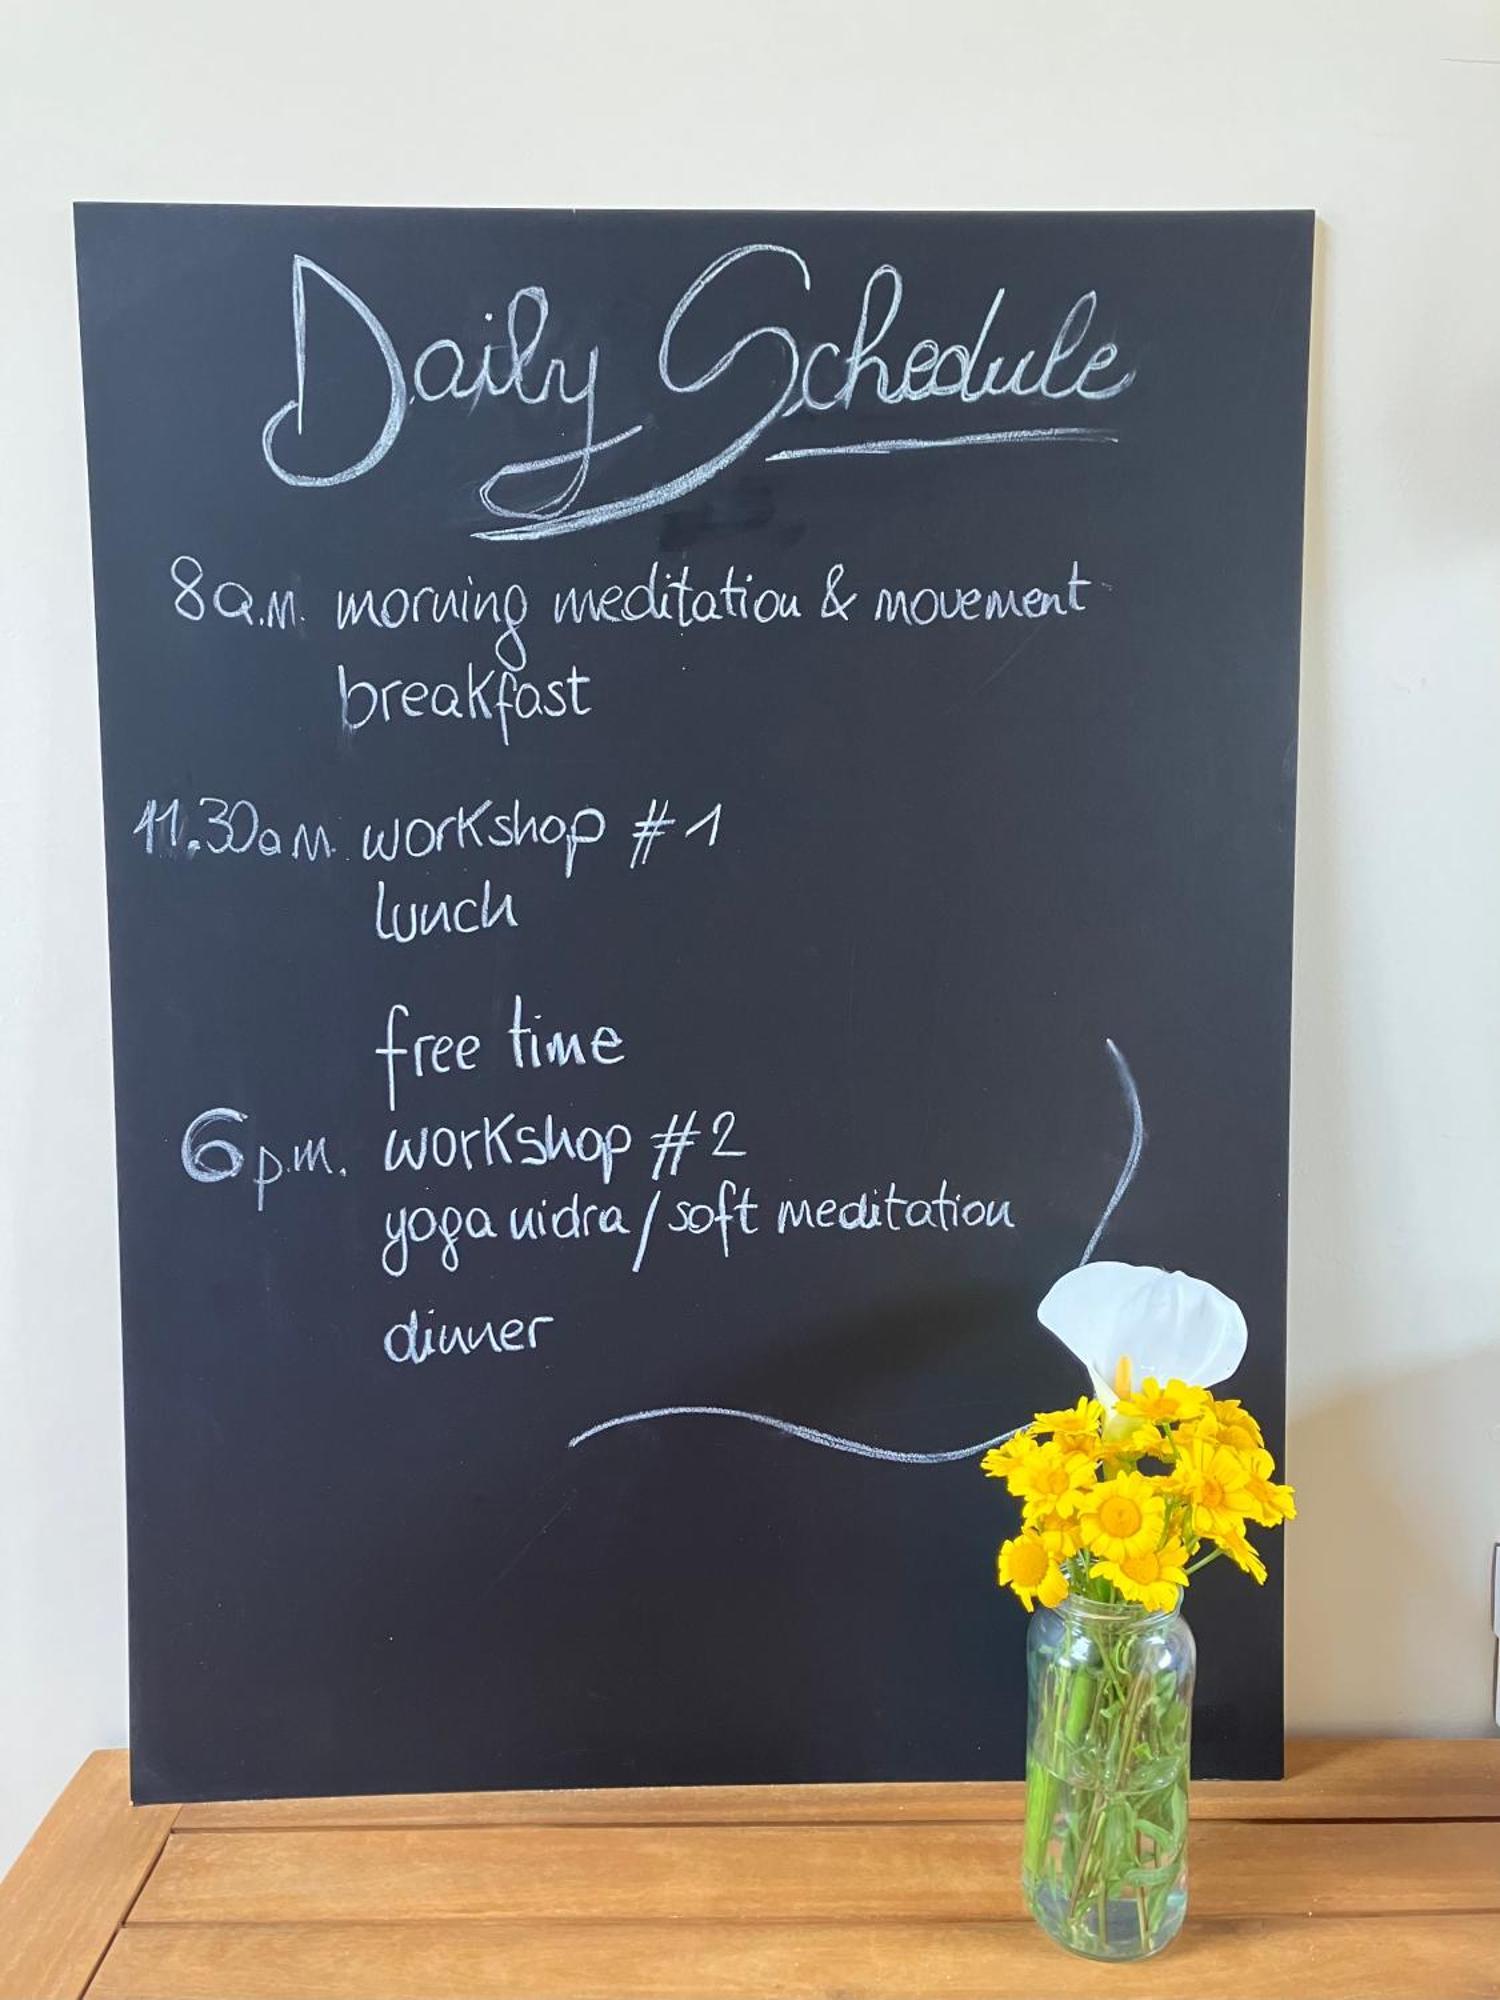 Daily Schedule
8a.m. morning meditation & movement
breakfast
11.30a.m. workshop #1
lunch
free time
6p.m. workshop #2
yoga nidra/soft meditation
dinner